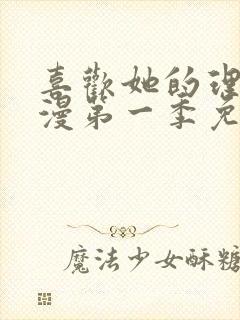 喜歡她的理
漫第一季免
魔法少女酥糖